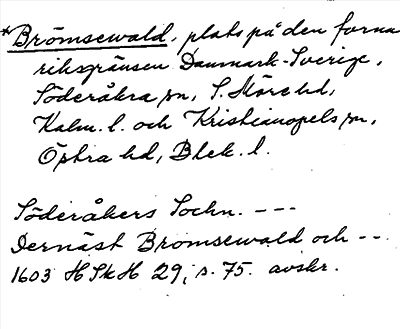 *Brömsewald, plats på den forna
riksgränsen Danmark-Sverige,
Söderåkra sn, S. Möre hd,
Kalm. l. och Kristianopels sn,
Östra hd, Blek. l.
Söderåkers Sochn. ---
Dernäst Bromsewald och --
1603 HSkH 29, s. 75. avskr.